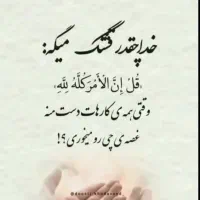 خدا چقدر قشنگ میگه:
﴿قُلْ إِنَّ الْأَمْرَ كُلَّهُ لِلَّهِ﴾
وقتی همه‌ی کارهات دست منه
غصه‌ی چی رو میخوری؟!